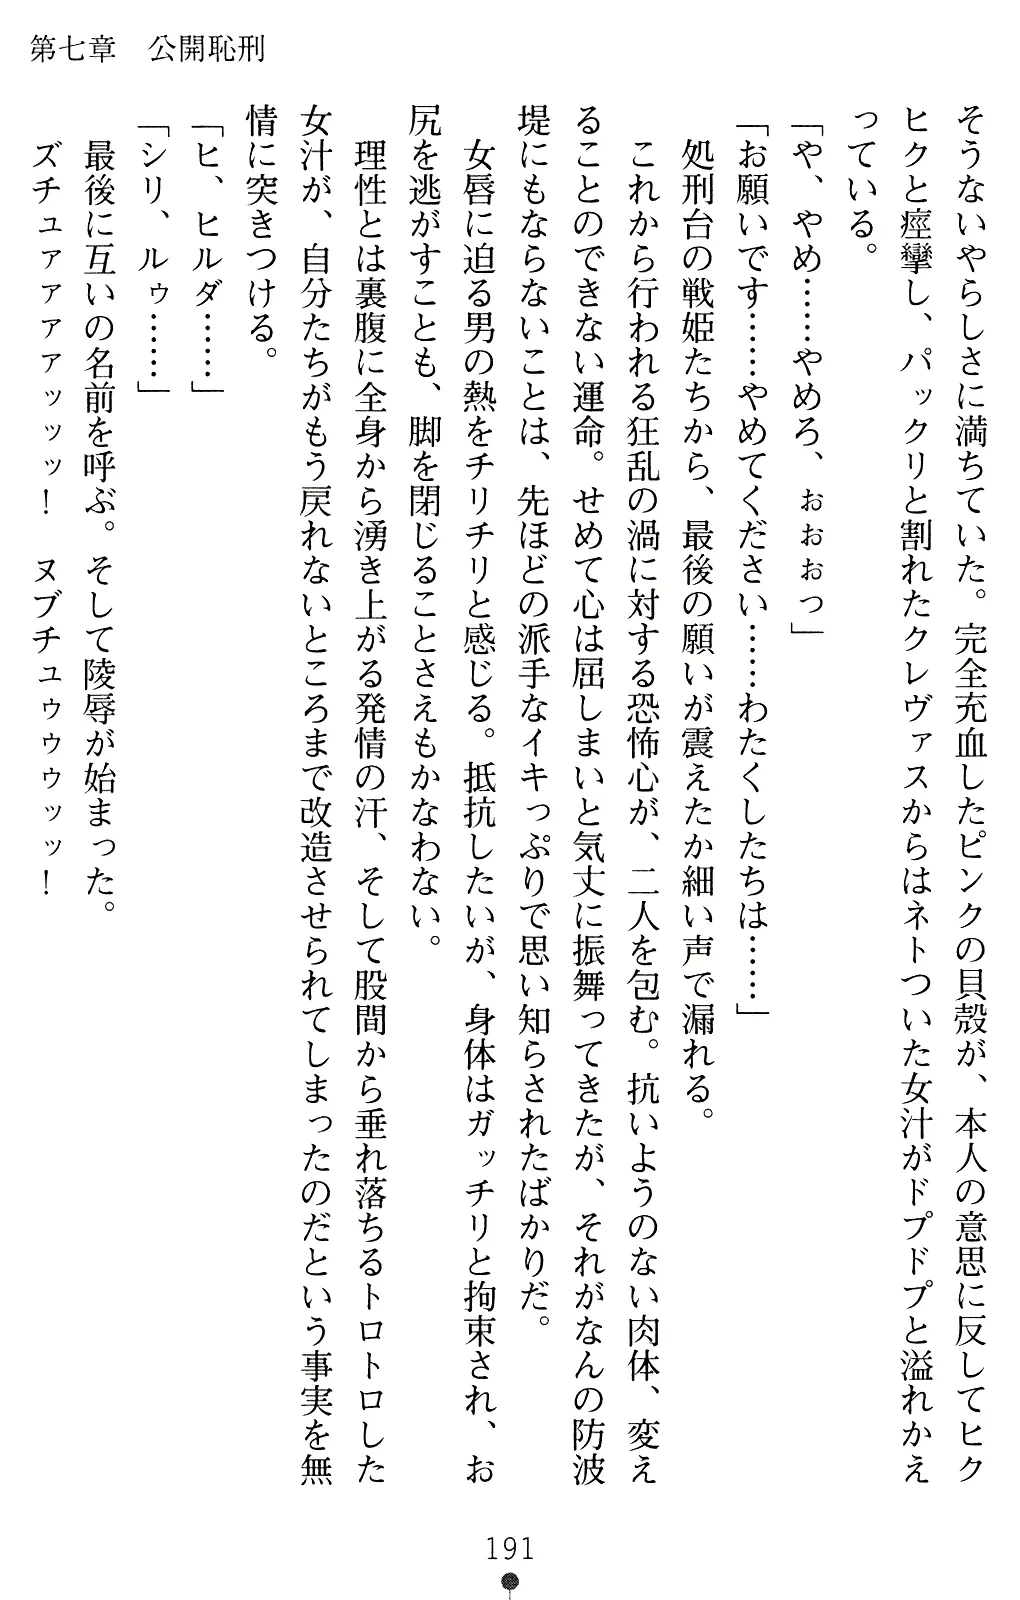 第七章　公開恥刑
そうないやらしさに満ちていた。完全充血したピンクの貝殻が、本人の意思に反してヒク
ヒクと痙攣し、パックリと割れたクレヴァスからはネトついた女汁がドプドプと溢れかえ
っている。
「や、やめ……やめろ、ぉぉぉっ」
「お願いです……やめてください……わたくしたちは……」
処刑台の戦姫たちから、最後の願いが震えたか細い声で漏れる。
これから行われる狂乱の渦に対する恐怖心が、二人を包む。抗いようのない肉体、変え
ることのできない運命。せめて心は屈しまいと気丈に振舞ってきたが、それがなんの防波
堤にもならないことは、先ほどの派手なイキっぷりで思い知らされたばかりだ。
女唇に迫る男の熱をチリチリと感じる。抵抗したいが、身体はガッチリと拘束され、お
尻を逃がすことも、脚を閉じることさえもかなわない。
理性とは裏腹に全身から湧き上がる発情の汗、そして股間から垂れ落ちるトロトロした
女汁が、自分たちがもう戻れないところまで改造させられてしまったのだという事実を無
情に突きつける。
「ヒ、ヒルダ……」
「シリ、ルゥ……」
最後に互いの名前を呼ぶ。そして陵辱が始まった。
ズチュァァァァッッッ！　ヌブチュゥゥゥッッ！
191